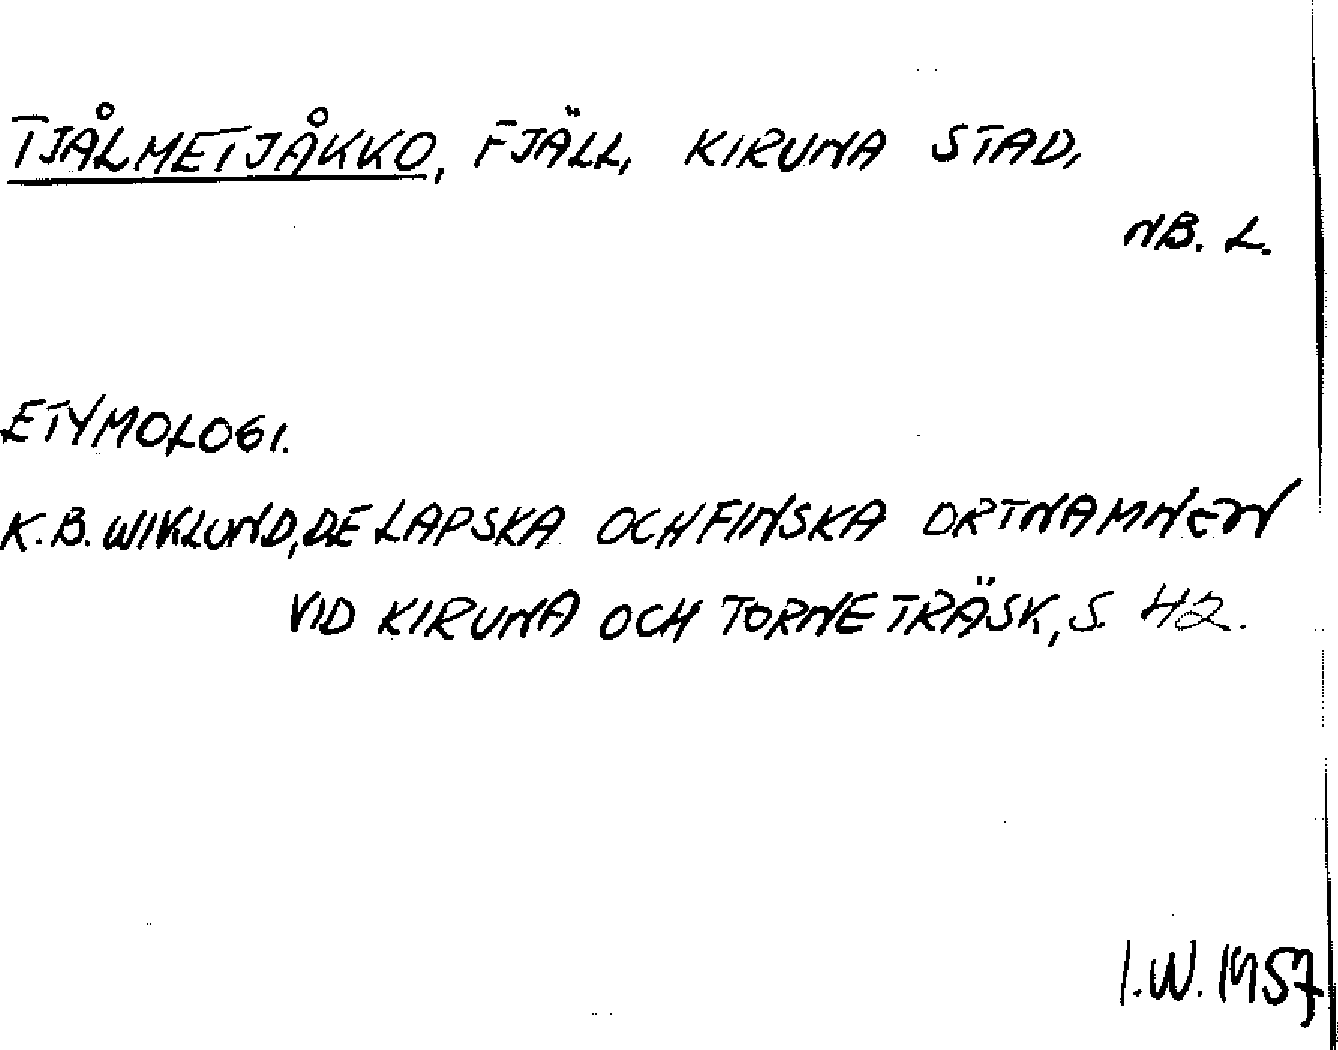 TJÅLMETJÅKKO, FJÄLL, KIRUNA STAD,
NB. L.
ETYMOLOGI.
K.B. WIKLUND, DE LAPSKA OCH FINSKA ORTNAMNEN
VID KIRUNA OCH TORNETRÄSK, S. 42.
I.W. 1957